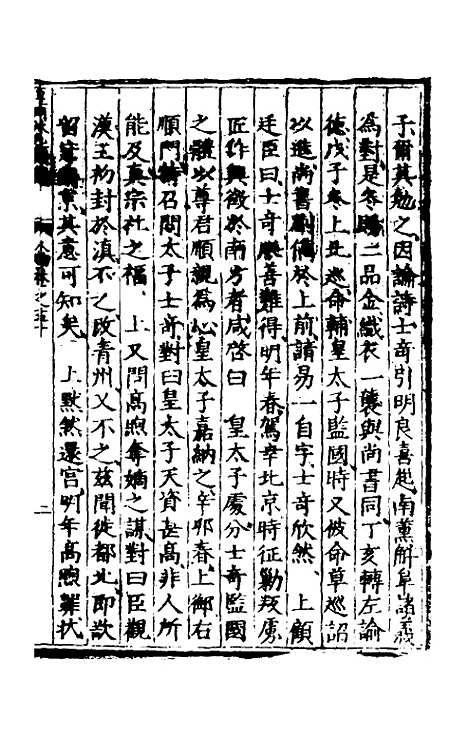 子爾其勉之因論詩士奇引明良喜起南薰解阜諸
為對是冬賜二品金織衣一襲與尚書同丁亥轉左諭
德戊子冬上北巡命輔皇太子監國時又被命草巡詔
以進尚書劉儁於上前請易一自字士奇欣然 上顧
廷臣曰士奇善難得明年春駕幸北京時征勦叛虜
匠作興徵於南方者咸啓曰 皇太子處分士奇監國
之體以尊君順親為心皇太子嘉納之辛卯春上御右
順門特召問太子士奇對曰皇太子天資甚高非人所
能及真宗社之福 上又問高煦奪嫡之謀對曰臣觀
漢王初封於滇不之改青州又不之茲聞徙都北即欲
留守京其意可知矣 上默然還宮明年高煦罪狀